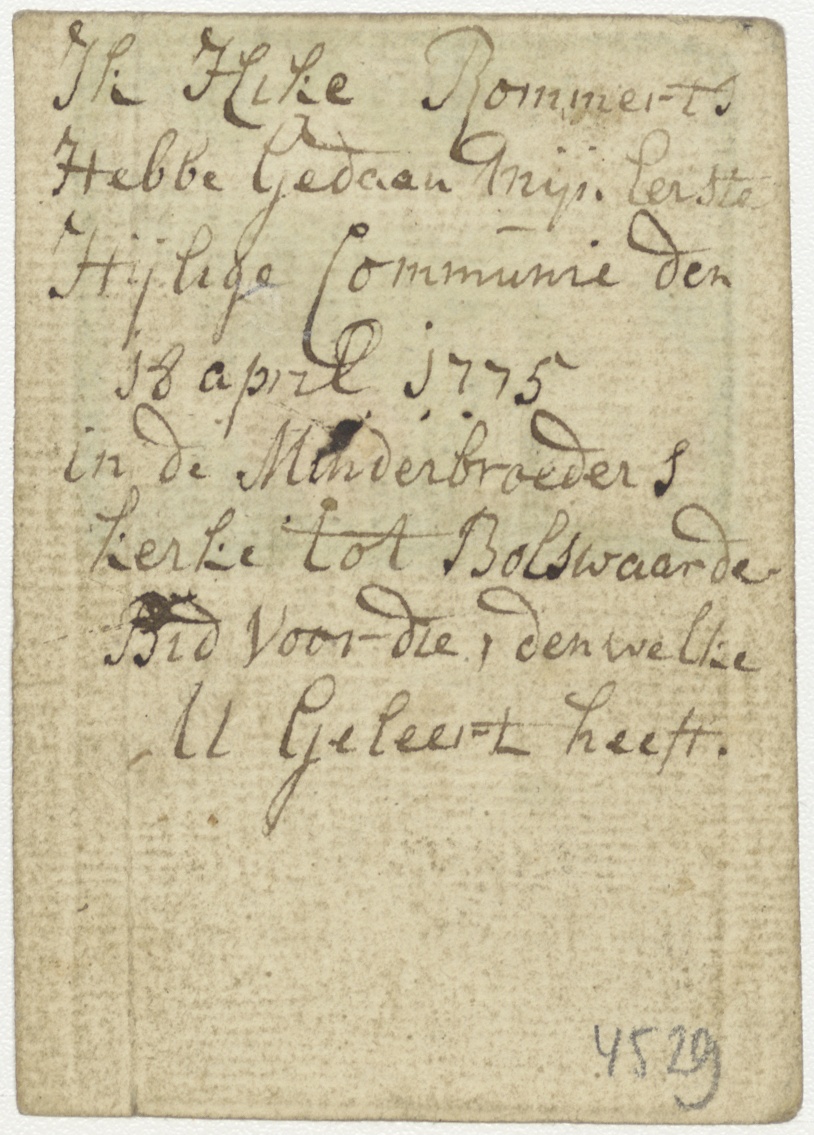 Ik Hike Rommerts
Hebbe Gedaan Mijn Eerste
Hijlige Communie den
18 april 1775
in de Minderbroeders
kerke tot Bolswaarde
Bid Voor die, den welke
U Geleert heeft.
4529